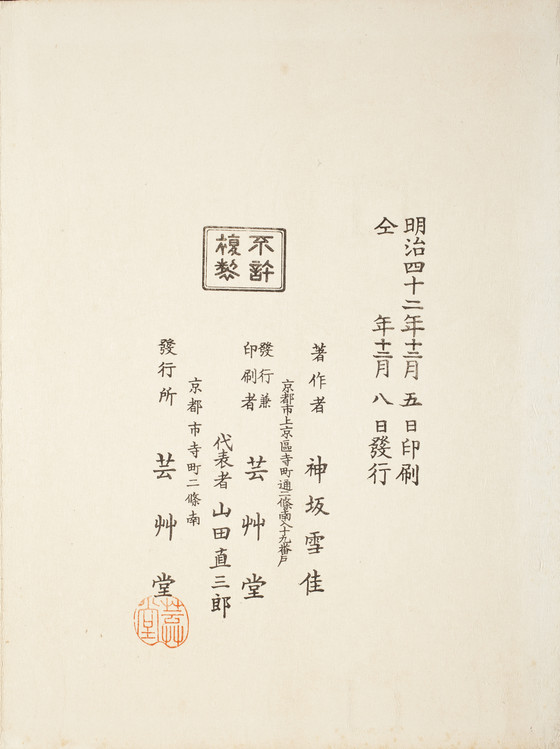 明治四十二年十二月五日印刷
仝年十二月八日發行
不許
複製
著作者 神坂雪佳
京都市上京區寺町通二條南入十九番戶
發行兼
印刷者 芸艸堂
代表者 山田直三郎
京都市寺町二條南
發行所 芸艸堂
芸艸
堂